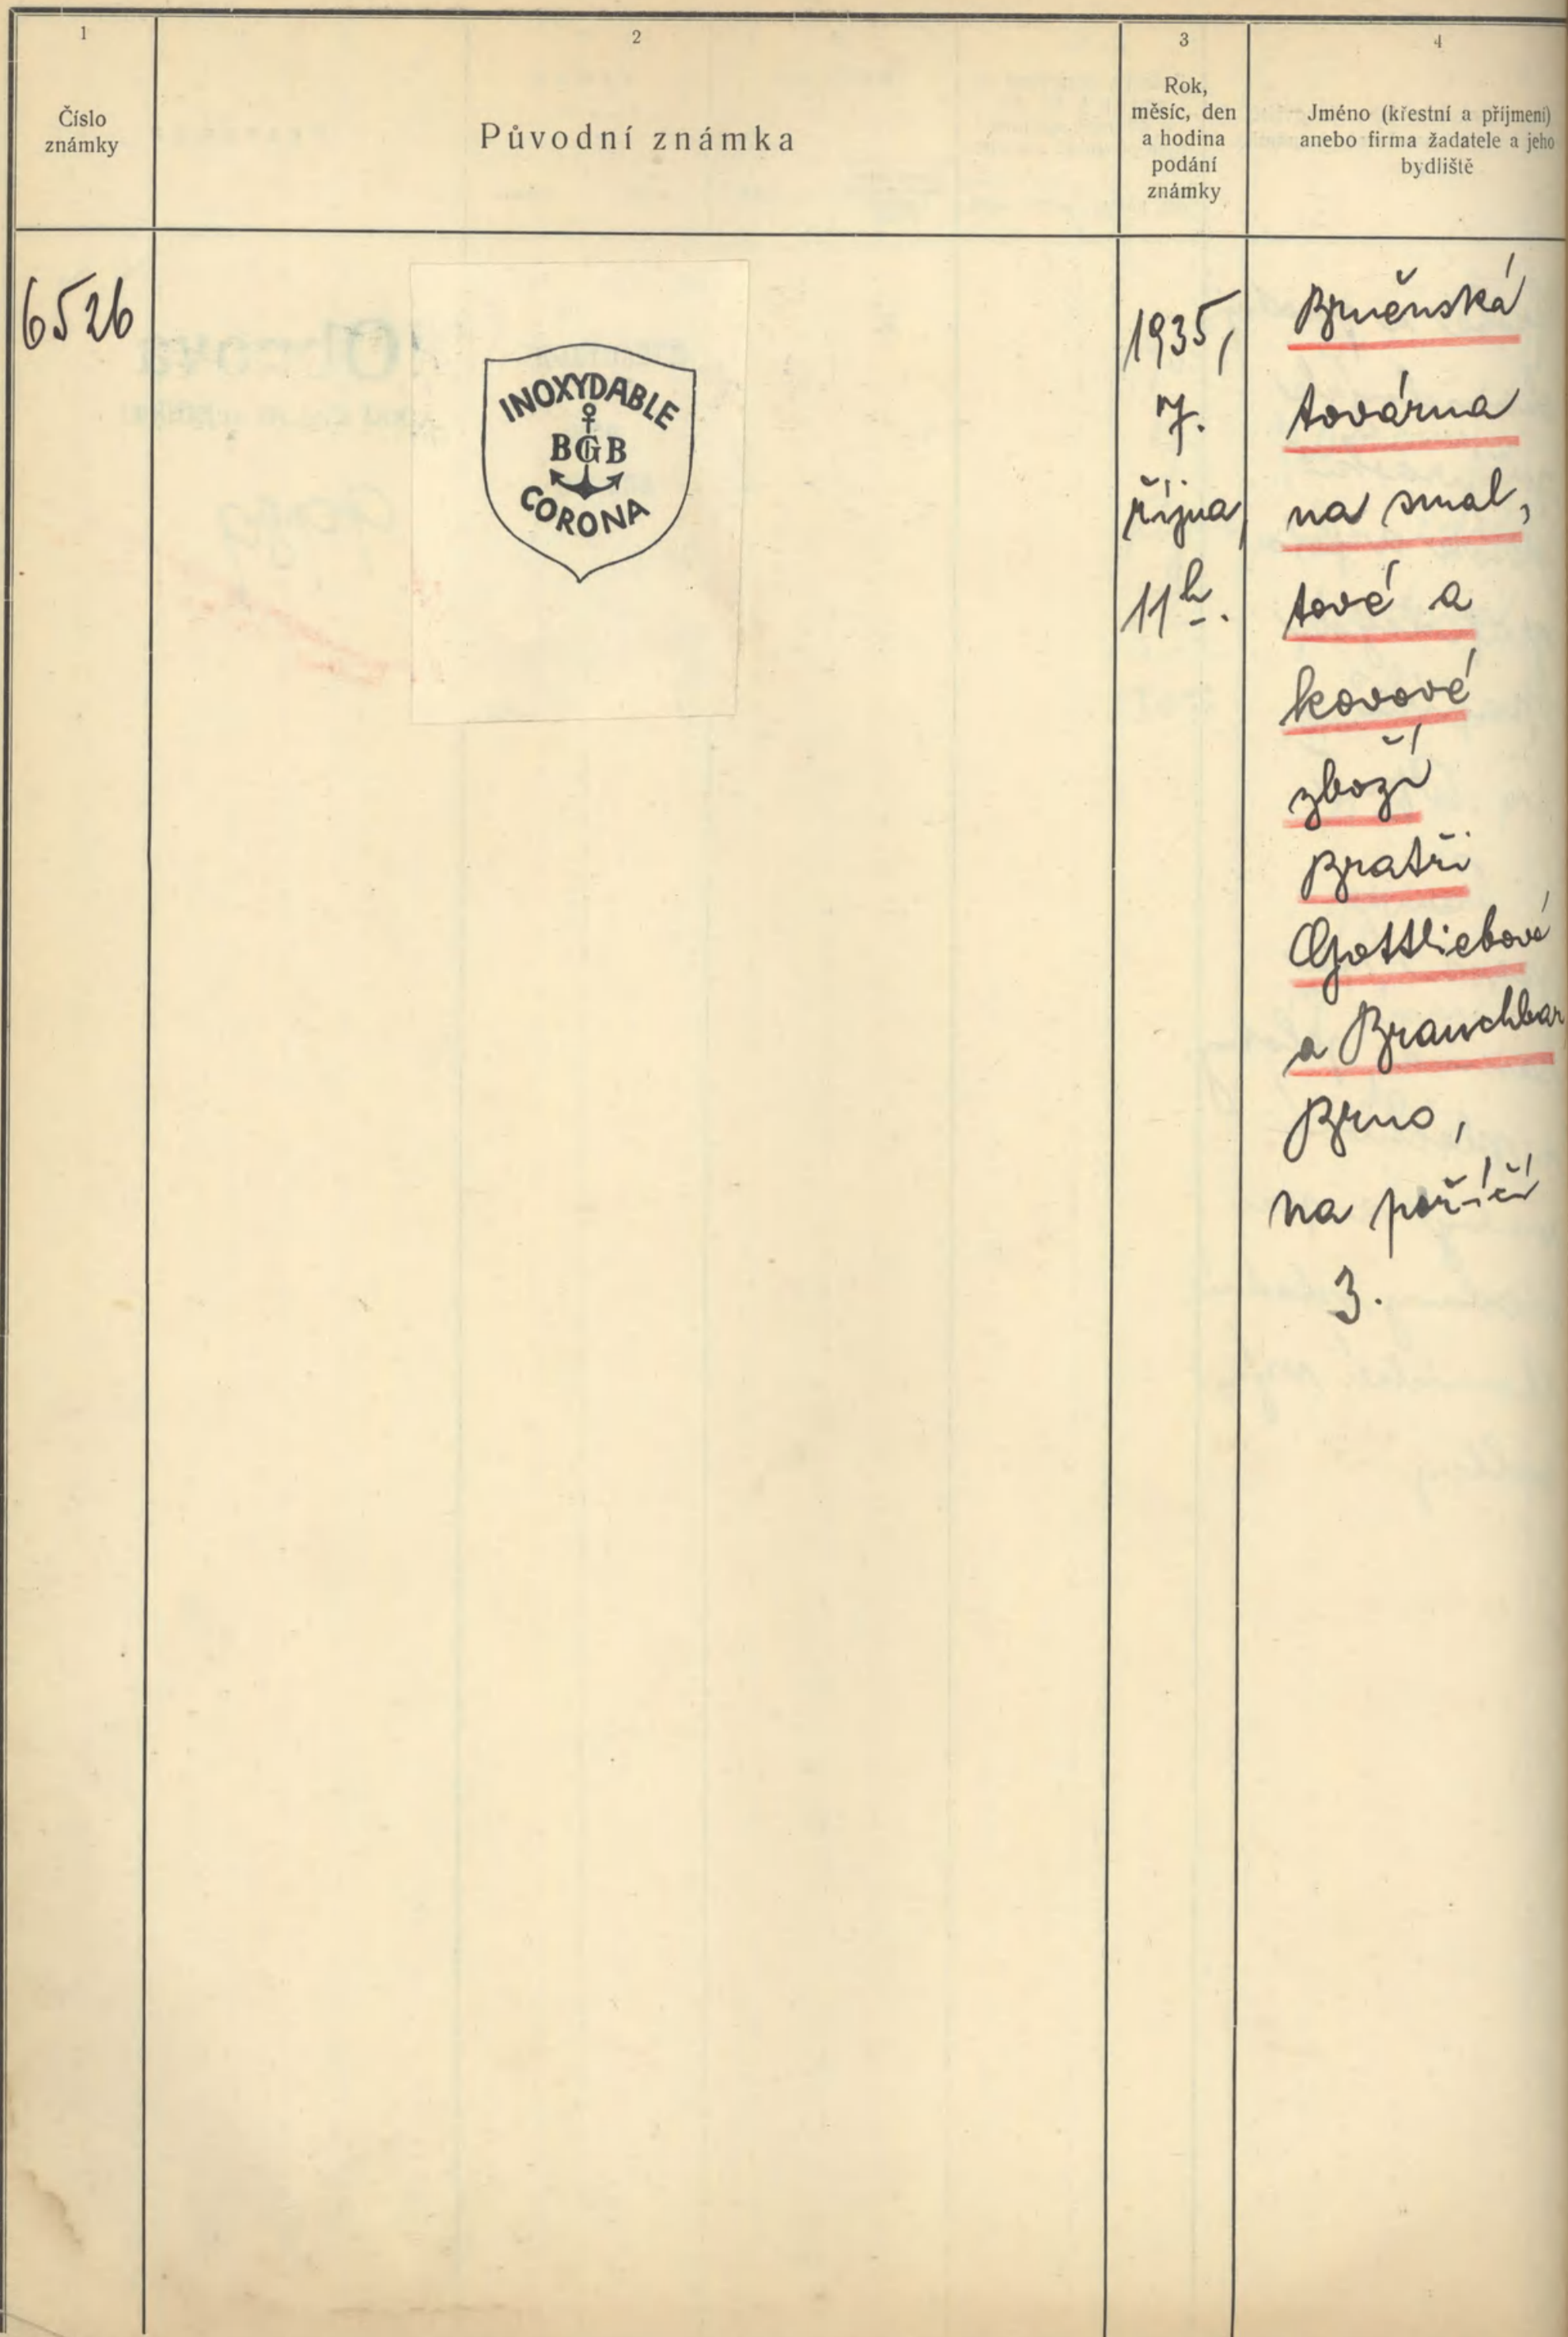 1
Číslo
známky
2
Původní známka
3
Rok,
měsíc, den
a hodina
podání
známky
4
Jméno (křestní a příjmení)
anebo firma žadatele a jeho
bydliště
6526
INOXYDABLE
BGB
CORONA
1935,
7.
října
11h.
Brněnská
továrna
na smal,
tové a
kovové
zboží
Bratři
Gottliebové
a Brauchbar
Brno,
na poříčí
3.